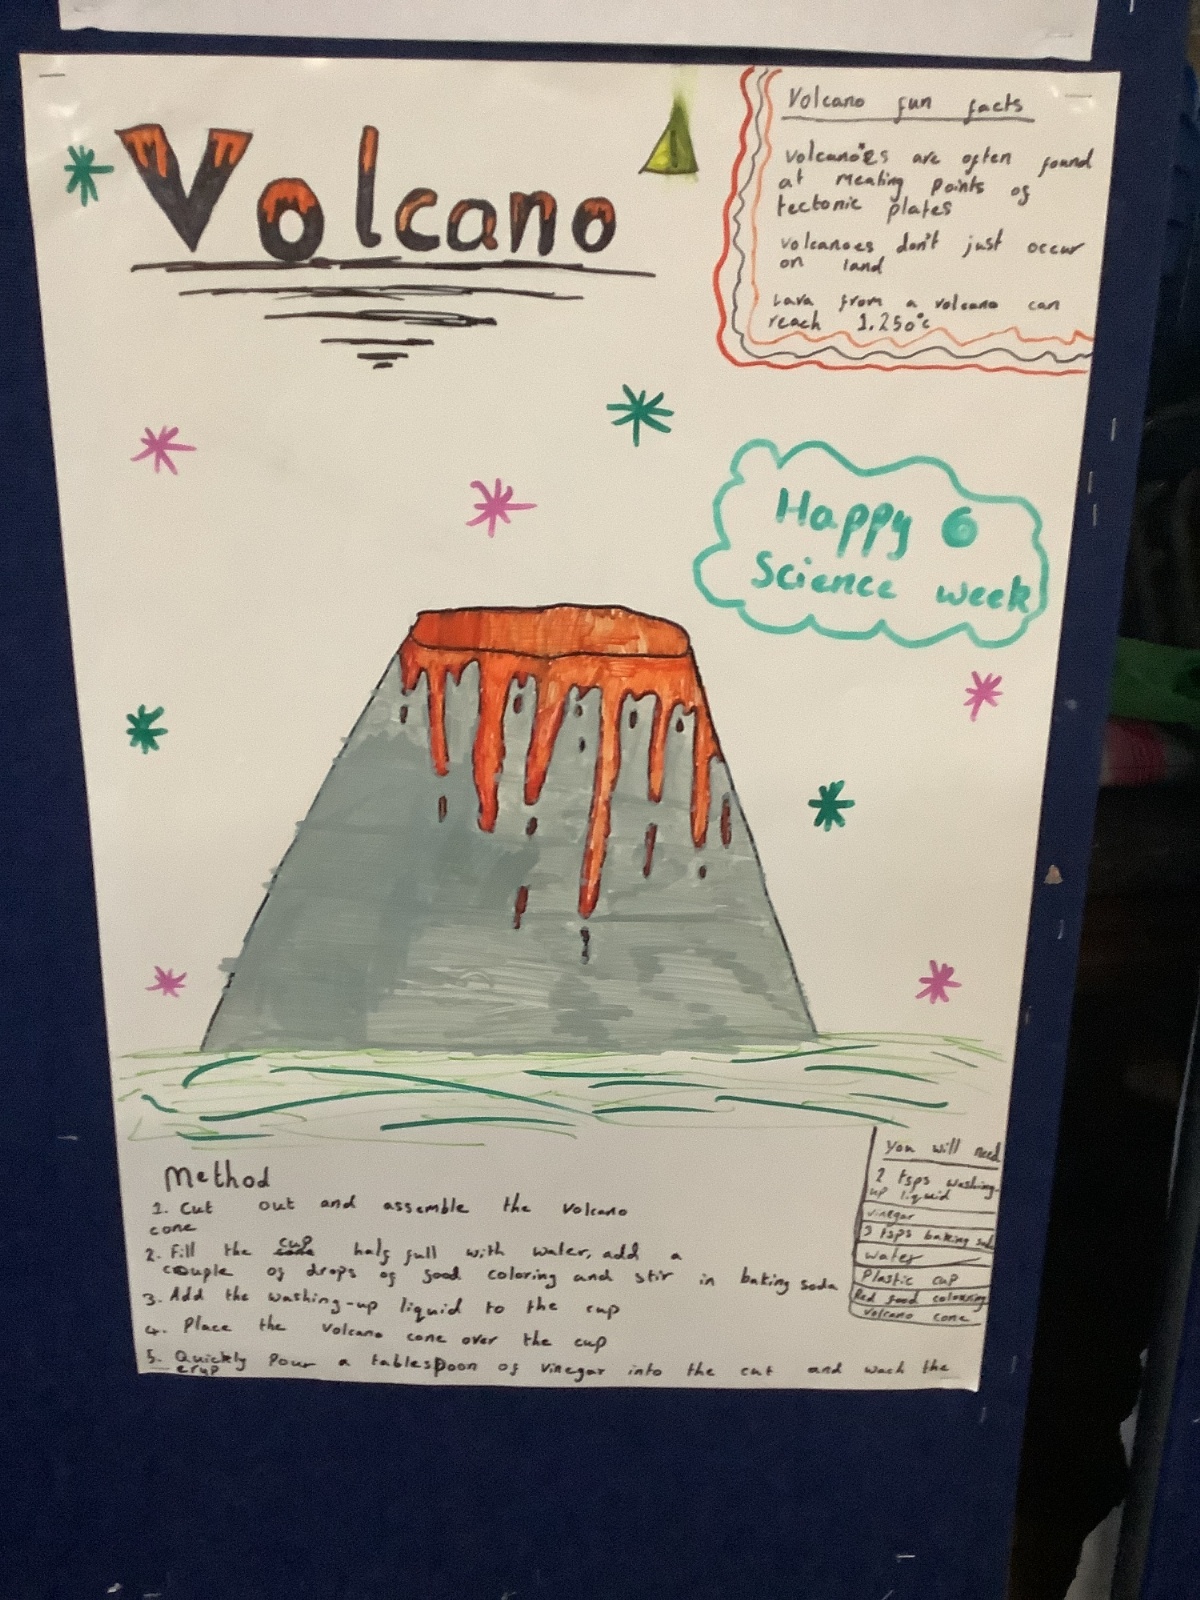 Volcano
Volcano fun facts
Volcanoes are often found
at meating points of
tectonic plates
volcanoes don't just occur
on land
Lava from a volcano can
reach 1.250°c
Happy
Science week
Method
1. Cut out and assemble the volcano
cone
2. Fill the cup half full with water, add a
couple of drops of food coloring and stir in baking soda
3. Add the washing-up liquid to the cup
4. Place the volcano cone over the cup
5. Quickly Pour a tablespoon of vinegar into the cut and wach the
erup
you will need
2 tsps washing-
up liquid
vinegar
tsps baking soda
water
Plastic cup
Red food colouring
volcano cone